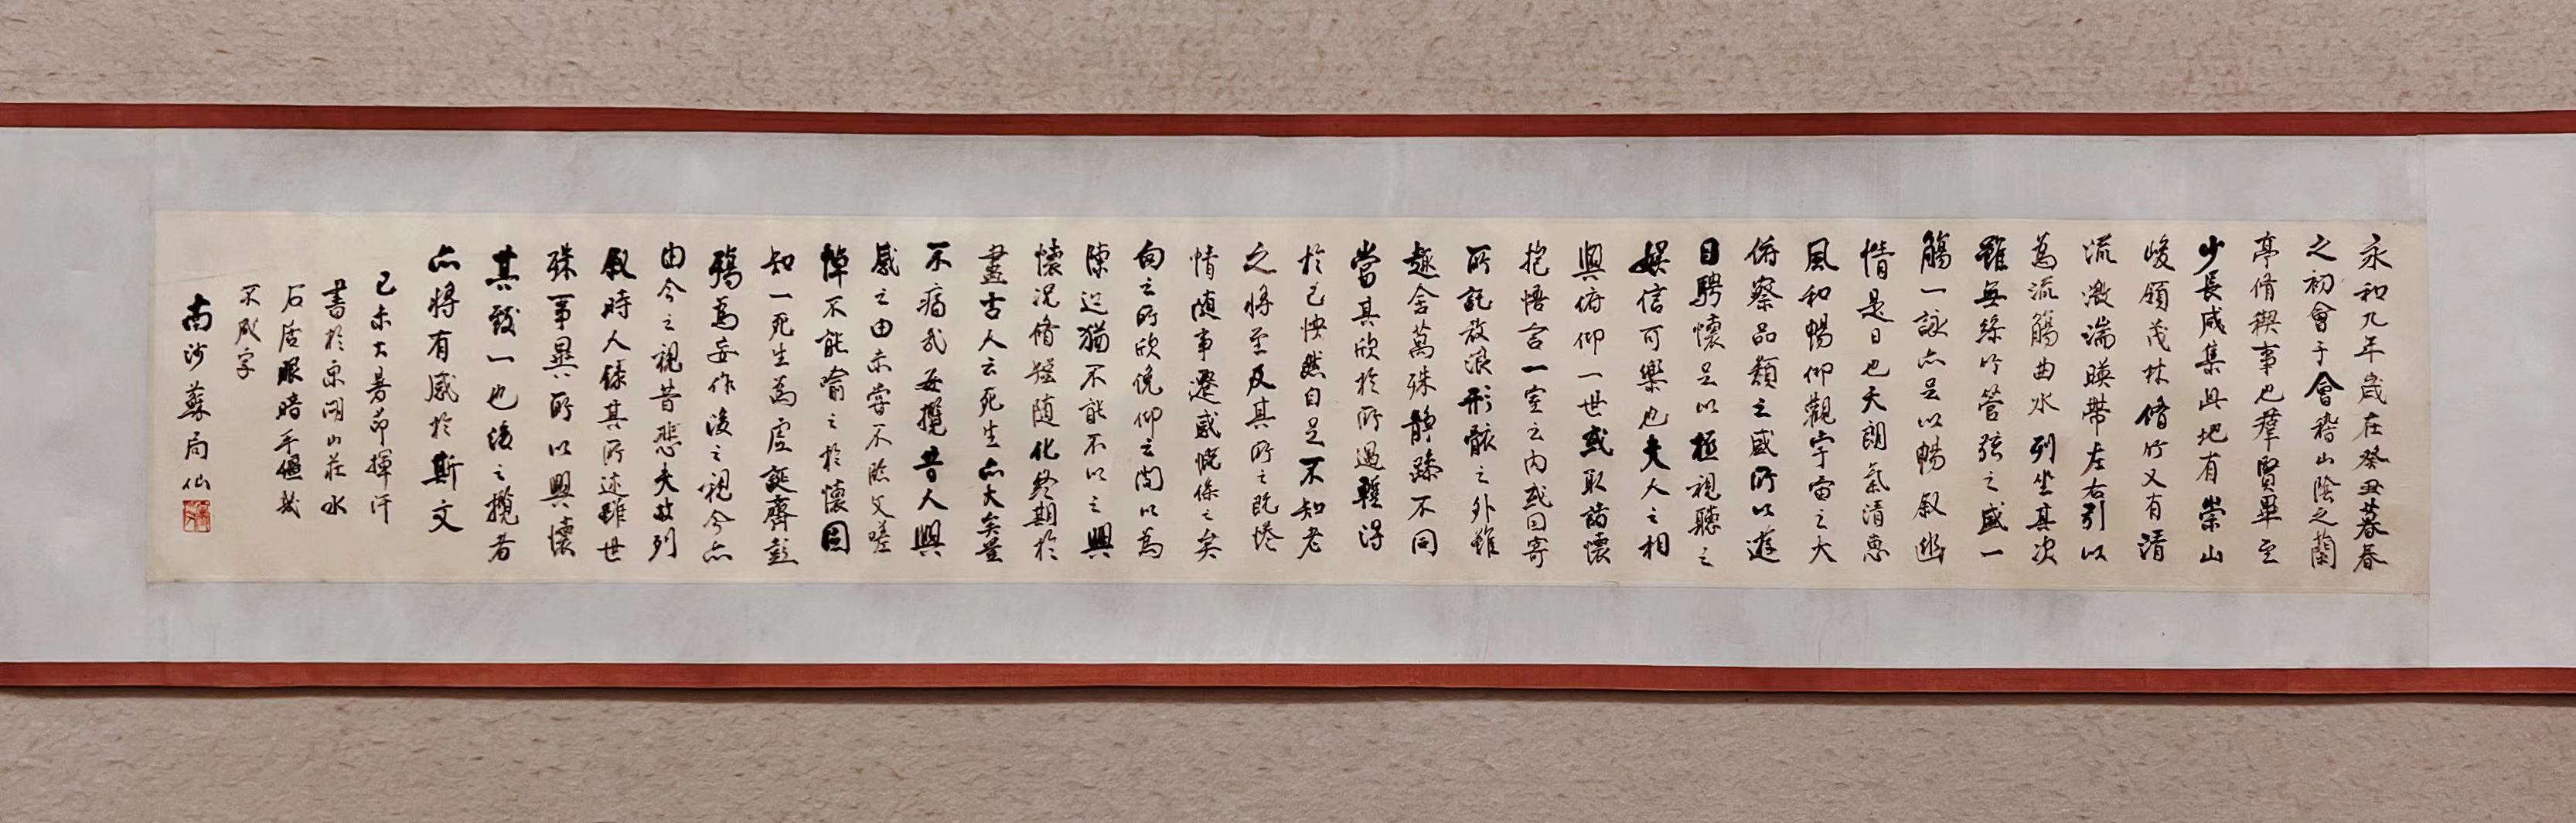 永和九年歲在癸丑暮春
之初會于會稽山陰之蘭
亭脩稧事也羣賢畢至
少長咸集此地有崇山
峻領茂林脩竹又有清
流激湍暎帶左右引以
為流觴曲水列坐其次
雖無絲竹管弦之盛一
觴一詠亦足以暢叙幽
情是日也天朗氣清惠
風和暢仰觀宇宙之大
俯察品類之盛所以遊
目騁懷足以極視聽之
娛信可樂也夫人之相
與俯仰一世或取諸懷
抱悟言一室之內或因寄
所託放浪形骸之外雖
趣舍萬殊靜躁不同
當其欣於所遇暫得
於己怏然自足不知老
之將至及其所之既惓
情隨事遷感慨係之矣
向之所欣俛仰之間以為
陳迹猶不能不以之興
懷況脩短隨化終期於
盡古人云死生亦大矣豈
不痛哉每攬昔人興
感之由未嘗不臨文嗟
悼不能喻之於懷固
知一死生為虛誕齊彭
殤為妄作後之視今亦
由今之視昔悲夫故列
叙時人錄其所述雖世
殊事異所以興懷
其致一也後之攬者
亦將有感於斯文
己未大暑節揮汗
書於東湖山莊水
石居眼暗手僵幾
不成字
南沙蘇局仙